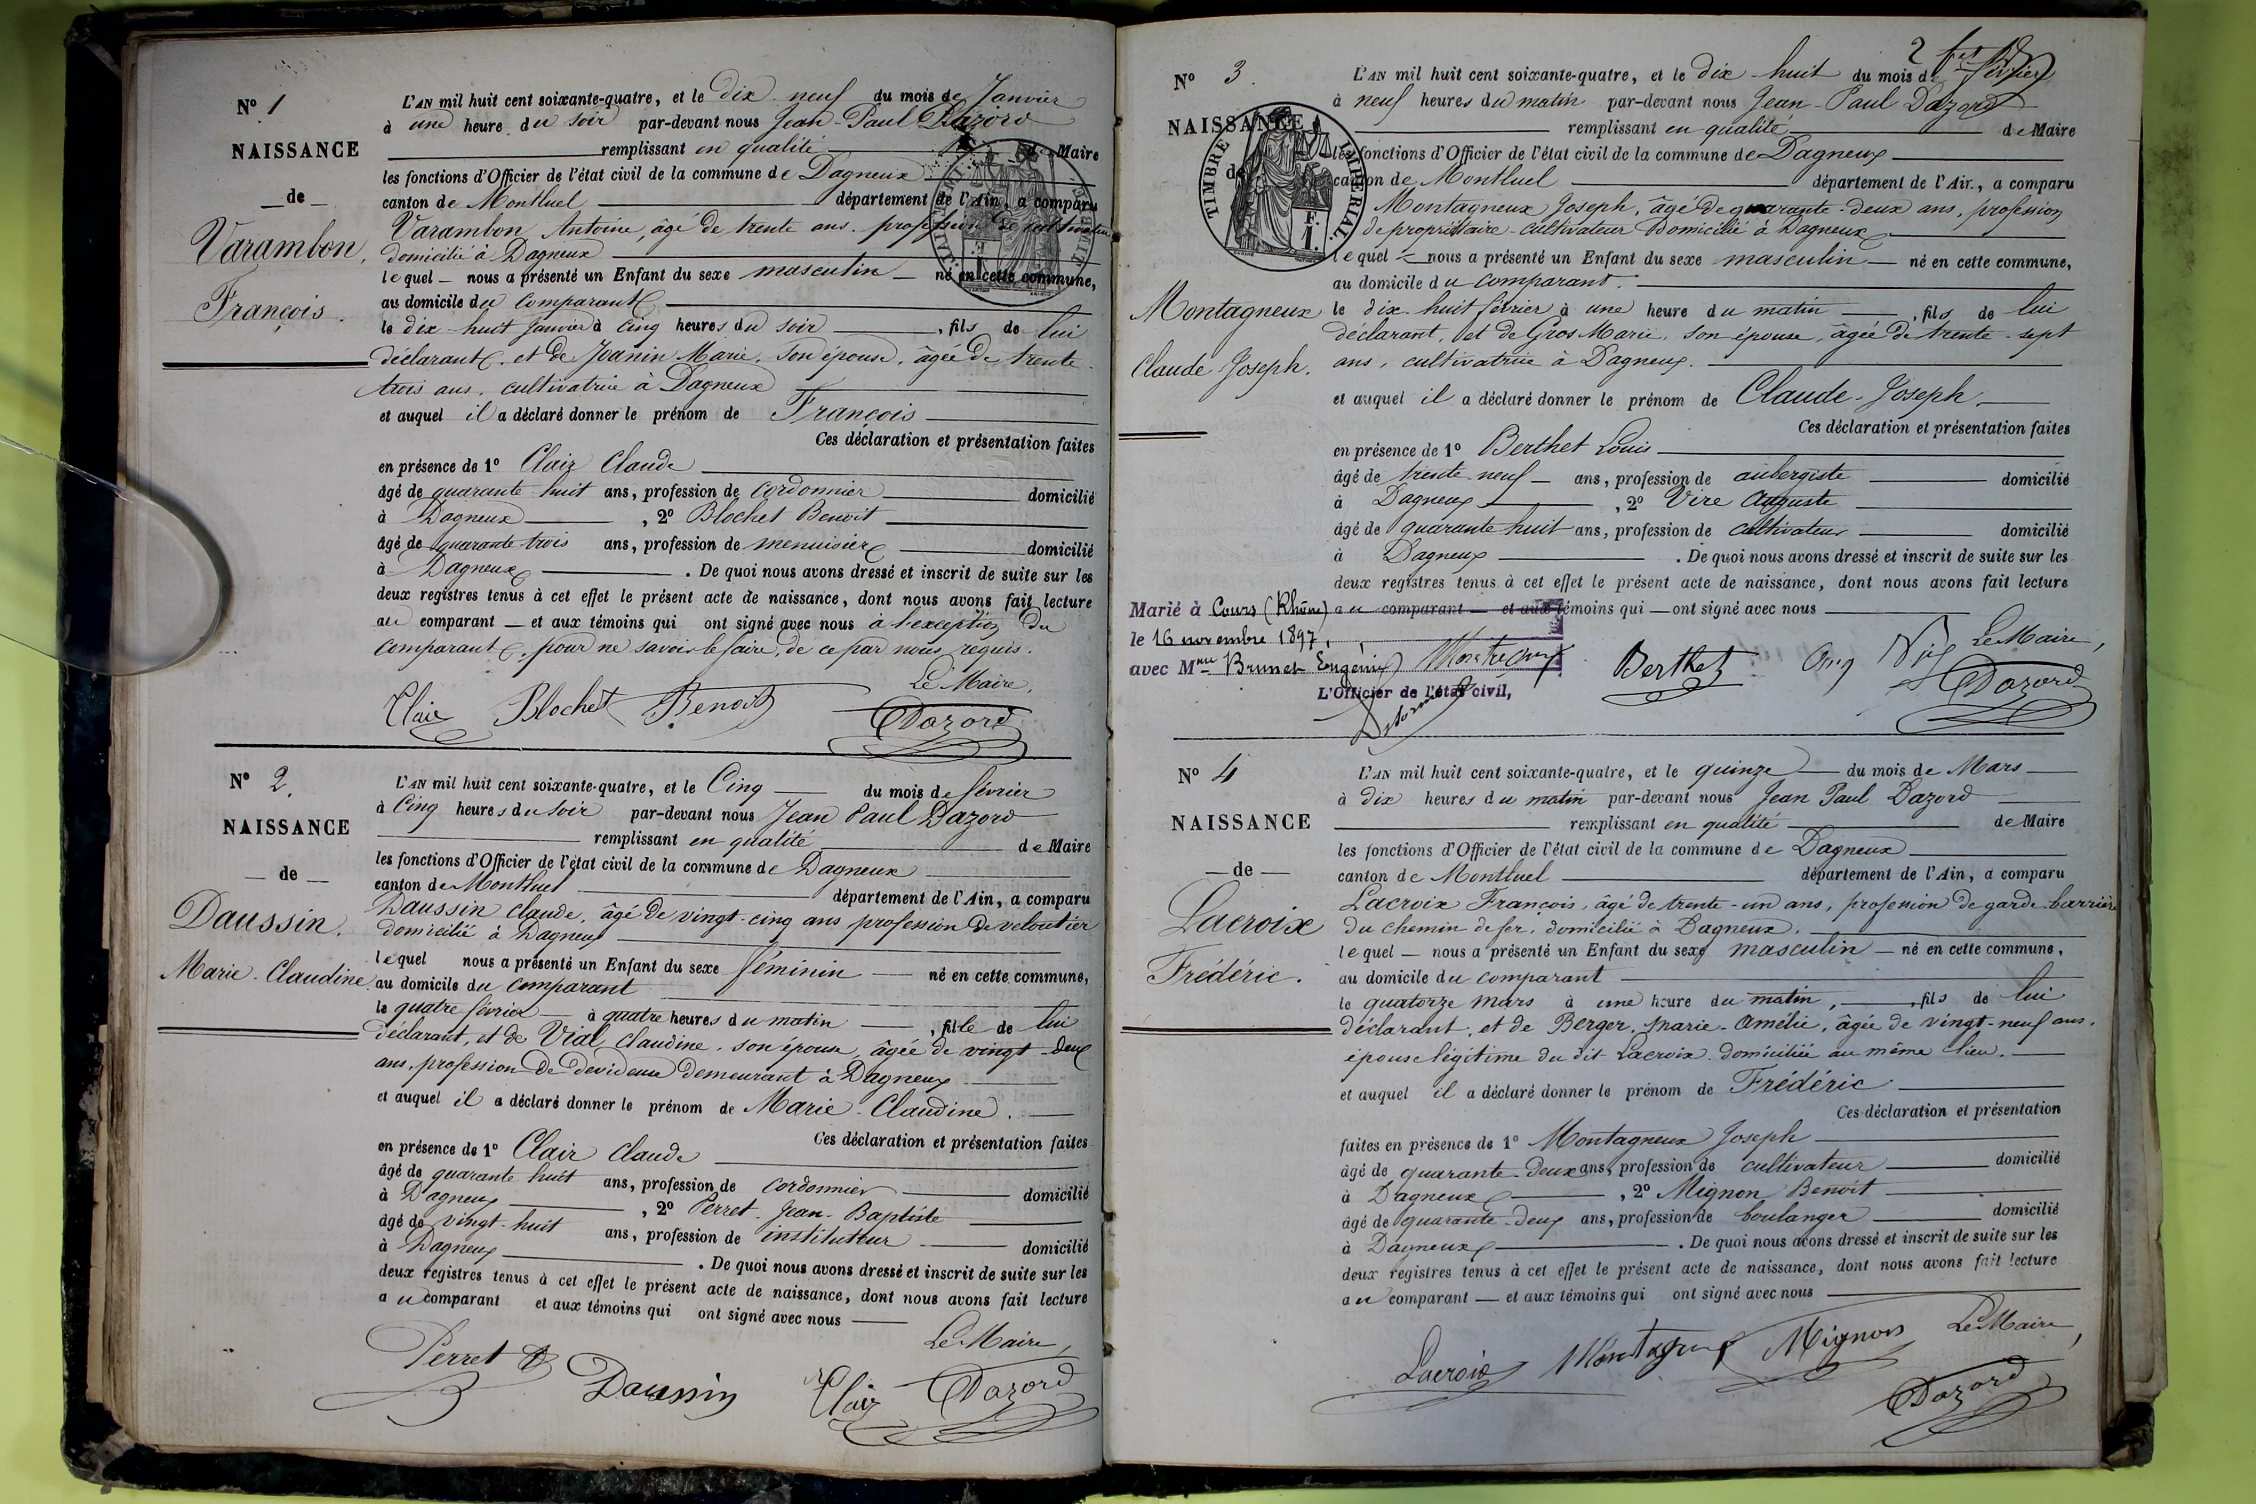 N° 1
NAISSANCE
de
Varambon,
François.
L'AN mil huit cent soixante-quatre, et le dix neuf du mois de Janvier
à une heure du soir par-devant nous Jean-Paul Dazord
remplissant en qualité de Maire
les fonctions d'Officier de l'état civil de la commune de Dagneux
canton de Montluel département de l'Ain, a comparu
Varambon Antoine, âgé de trente ans, profession de cultivateur
domicilié à Dagneux
lequel nous a présenté un Enfant du sexe masculin né en cette commune,
au domicile du comparant
le dix-huit Janvier à cinq heures du soir, fils de lui
déclarant, et de Jeanin Marie, son épouse, âgée de trente
trois ans, cultivatrice à Dagneux
et auquel il a déclaré donner le prénom de François
Ces déclaration et présentation faites
en présence de 1° Clair Claude
âgé de quarante huit ans, profession de cordonnier domicilié
à Dagneux, 2° Blochet Benoit
âgé de quarante trois ans, profession de menuisier domicilié
à Dagneux. De quoi nous avons dressé et inscrit de suite sur les
deux registres tenus à cet effet le présent acte de naissance, dont nous avons fait lecture
au comparant et aux témoins qui ont signé avec nous à l'exception du
comparant, pour ne savoir le faire, de ce par nous requis.
Le Maire,
Clair Blochet Benoit Dazord
N° 2.
NAISSANCE
de
Daussin.
Marie-Claudine
L'AN mil huit cent soixante-quatre, et le Cinq du mois de février
à Cinq heures du soir par-devant nous Jean Paul Dazord
remplissant en qualité de Maire
les fonctions d'Officier de l'état civil de la commune de Dagneux
canton de Montluel département de l'Ain, a comparu
Daussin Claude, âgé de vingt-cinq ans profession de veloutier
domicilié à Dagneux
lequel nous a présenté un Enfant du sexe féminin né en cette commune,
au domicile du comparant
le quatre février à quatre heures du matin, fille de lui
déclarant, et de Vial Claudine, son épouse, âgée de vingt-deux
ans, profession de devideuse demeurant à Dagneux
et auquel il a déclaré donner le prénom de Marie-Claudine.
Ces déclaration et présentation faites
en présence de 1° Clair Claude
âgé de quarante huit ans, profession de cordonnier domicilié
à Dagneux, 2° Perret Jean-Baptiste
âgé de vingt-huit ans, profession de instituteur domicilié
à Dagneux. De quoi nous avons dressé et inscrit de suite sur les
deux registres tenus à cet effet le présent acte de naissance, dont nous avons fait lecture
au comparant et aux témoins qui ont signé avec nous
Le Maire,
Perret Daussin Clair Dazord
2
N° 3
NAISSANCE
de
TIMBRE IMPERIAL
Montagneux
Claude Joseph.
L'AN mil huit cent soixante-quatre, et le dix-huit du mois de février
à neuf heures du matin par-devant nous Jean-Paul Dazord
remplissant en qualité de Maire
les fonctions d'Officier de l'état civil de la commune de Dagneux
canton de Montluel département de l'Ain, a comparu
Montagneux Joseph, âgé de quarante-deux ans, profession
de propriétaire-cultivateur domicilié à Dagneux
lequel nous a présenté un Enfant du sexe masculin né en cette commune,
au domicile du comparant.
le dix-huit février à une heure du matin, fils de lui
déclarant, et de Gros Marie, son épouse, âgée de trente-sept
ans, cultivatrice à Dagneux.
et auquel il a déclaré donner le prénom de Claude-Joseph.
Ces déclaration et présentation faites
en présence de 1° Berthet Louis
âgé de trente neuf ans, profession de aubergiste domicilié
à Dagneux, 2° Vire Auguste
âgé de quarante huit ans, profession de cultivateur domicilié
à Dagneux. De quoi nous avons dressé et inscrit de suite sur les
deux registres tenus à cet effet le présent acte de naissance, dont nous avons fait lecture
au comparant et aux témoins qui ont signé avec nous
Marié à Cours (Rhône)
le 16 novembre 1897,
avec Mlle Brunet Eugénie
L'Officier de l'état civil,
Le Maire,
Berthet Dazord
N° 4
NAISSANCE
de
Lacroix
Frédéric.
L'AN mil huit cent soixante-quatre, et le quinze du mois de Mars
à dix heures du matin par-devant nous Jean Paul Dazord
remplissant en qualité de Maire
les fonctions d'Officier de l'état civil de la commune de Dagneux
canton de Montluel département de l'Ain, a comparu
Lacroix François, âgé de trente-un ans, profession de garde-barrière
du chemin de fer, domicilié à Dagneux.
lequel nous a présenté un Enfant du sexe masculin né en cette commune,
au domicile du comparant
le quatorze mars à une heure du matin, fils de lui
déclarant, et de Berger, Marie-Amélie, âgée de vingt-neuf ans,
épouse légitime du dit Lacroix domiciliée au même lieu.
et auquel il a déclaré donner le prénom de Frédéric
Ces déclaration et présentation
faites en présence de 1° Montagneux Joseph
âgé de quarante-deux ans, profession de cultivateur domicilié
à Dagneux, 2° Mignon Benoit
âgé de quarante-deux ans, profession de boulanger domicilié
à Dagneux. De quoi nous avons dressé et inscrit de suite sur les
deux registres tenus à cet effet le présent acte de naissance, dont nous avons fait lecture
au comparant et aux témoins qui ont signé avec nous
Le Maire,
Lacroix Montagneux Mignon
Dazord